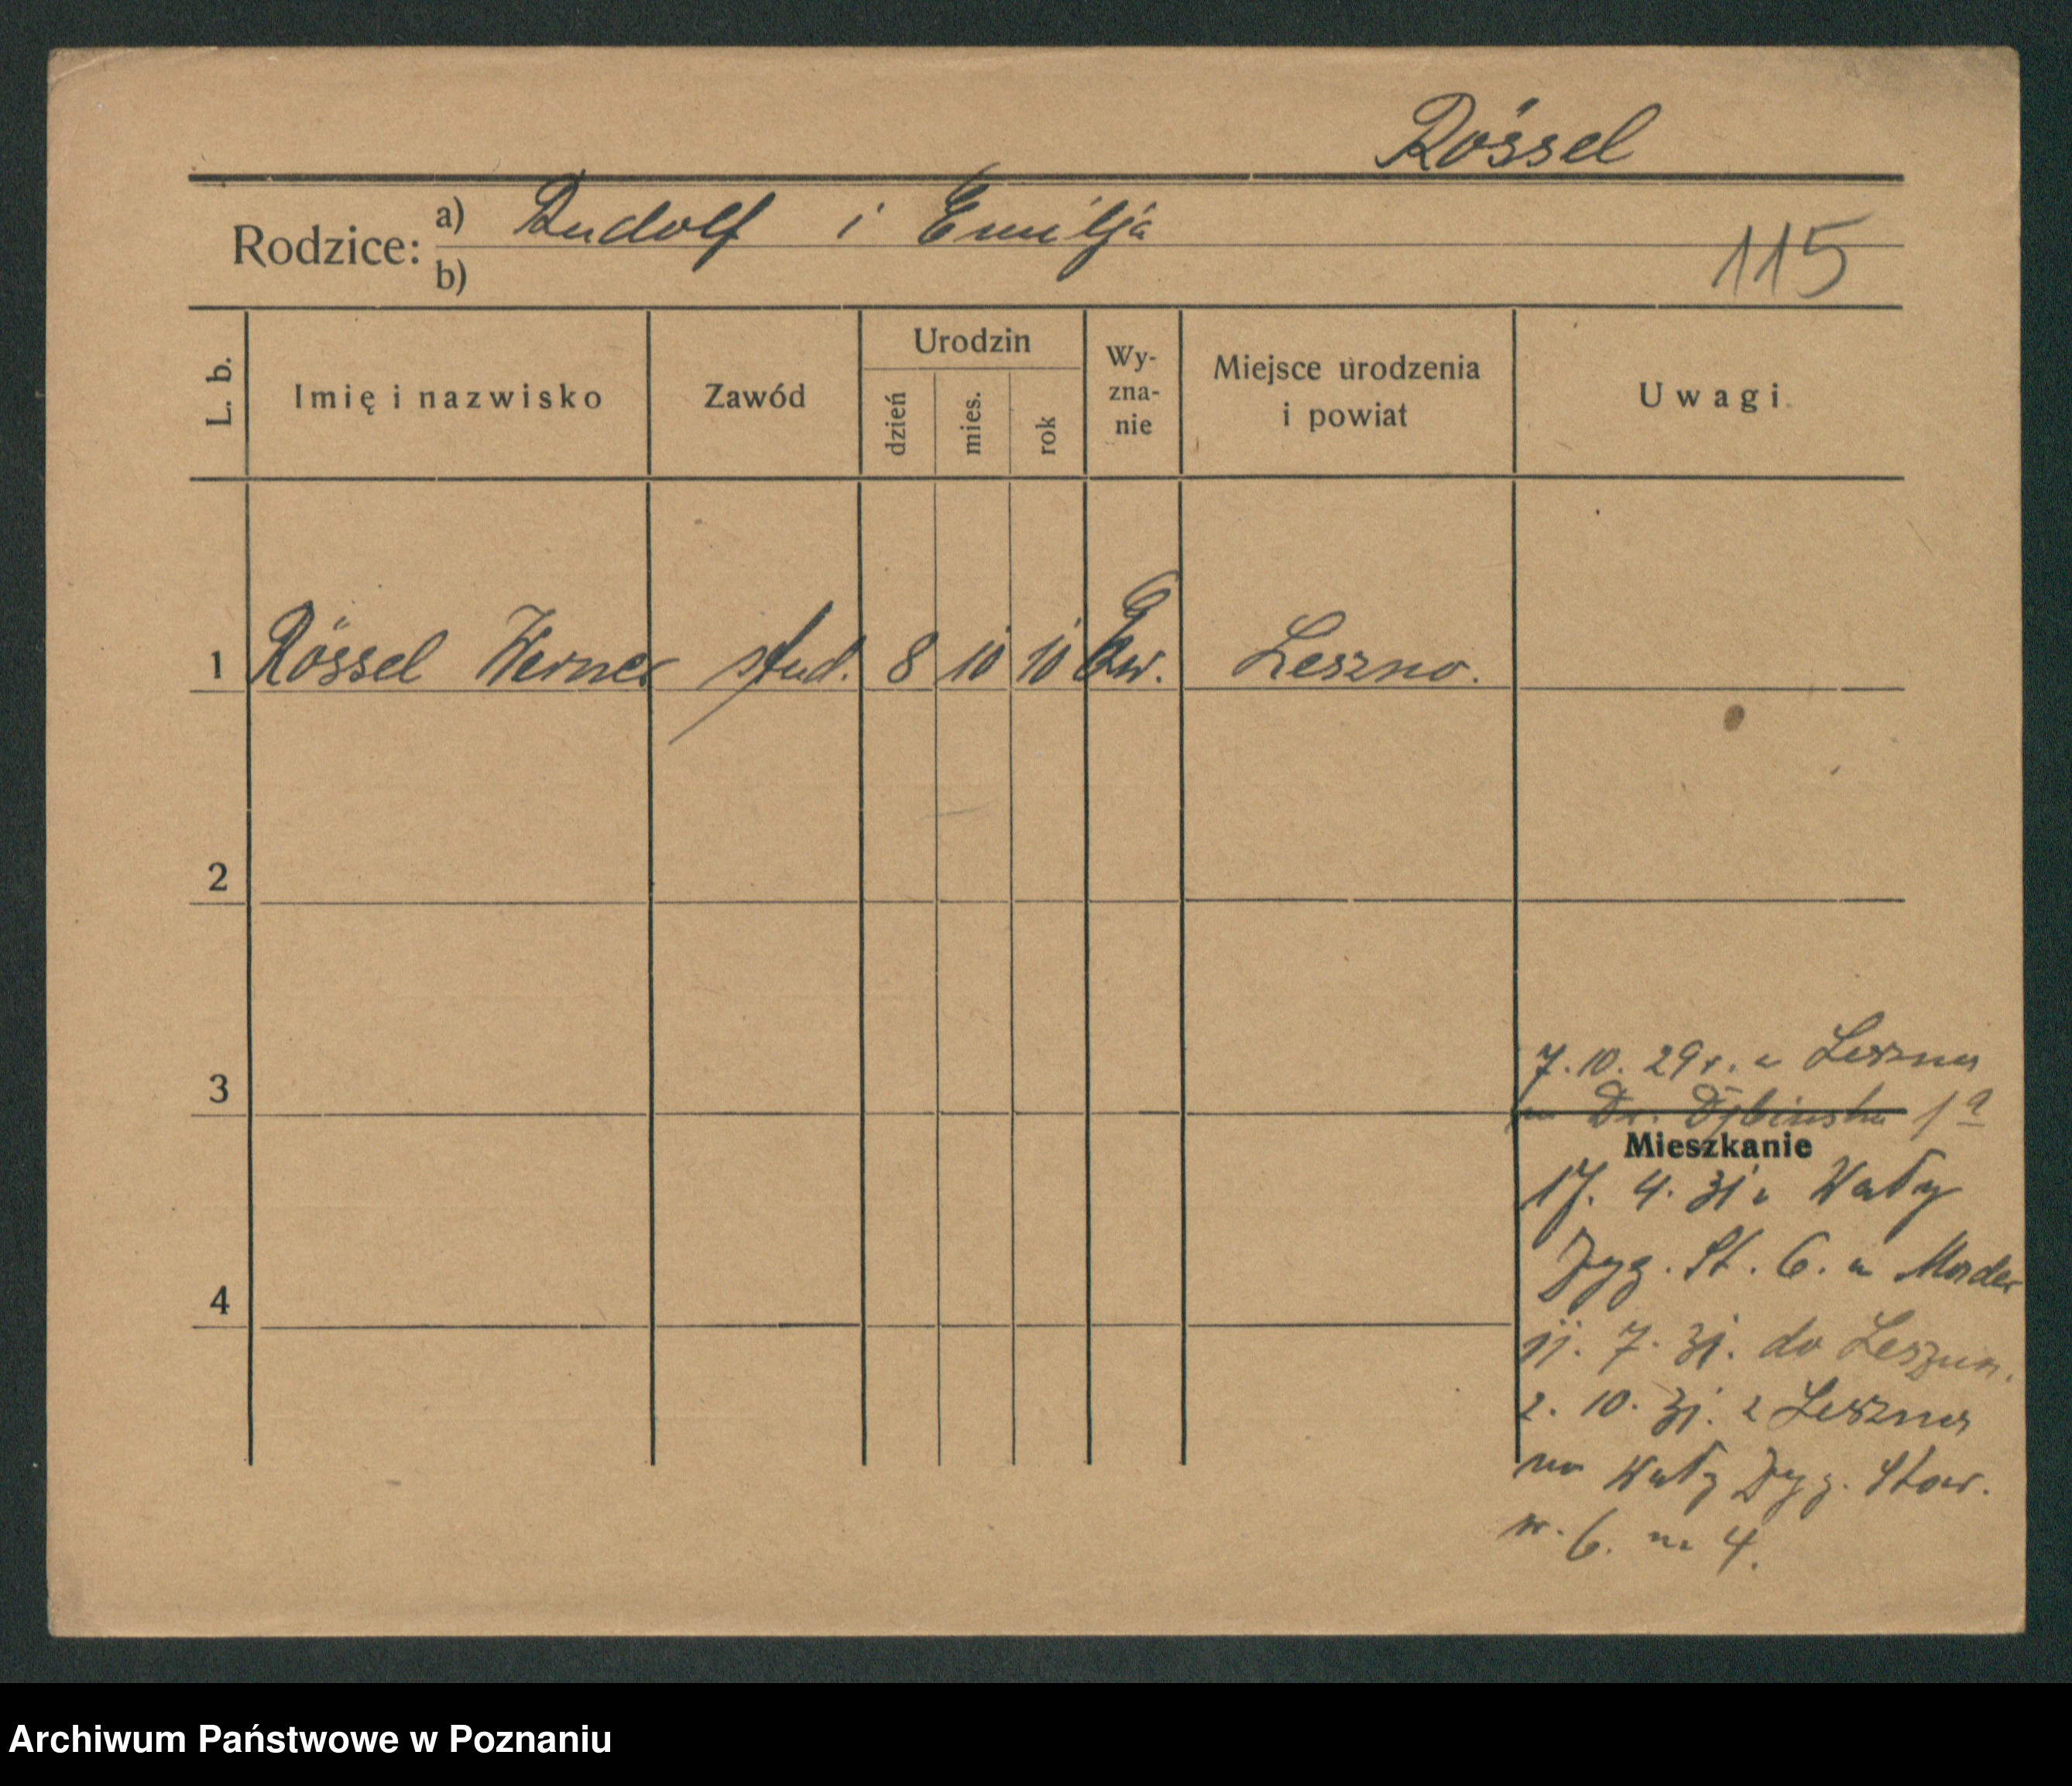 Rössel
Rodzice: a) Rudolf i Emilja
b)
115
L. b. Imię i nazwisko Zawód Urodzin dzień mies. rok Wy-zna-nie Miejsce urodzenia i powiat Uwagi
1 Rössel Werner stud. 8 10 10 Ew. Leszno.
2
3
7.10.29r. z Leszna
Dr. Dębińska 1a
Mieszkanie
17. 4. 31 Wały
Zyg. St. 6. u
4
11. 7. 31. do Leszna.
2. 10. 31. z Leszna
na Wały Zyg. Star.
nr. 6. m 4.
Archiwum Państwowe w Poznaniu